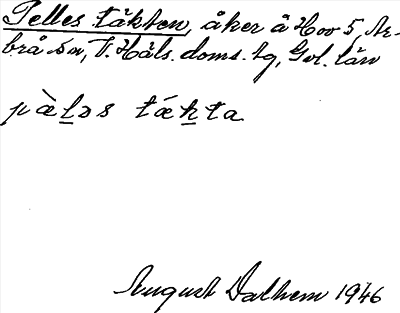 Pelles täkten, åker å Hov 5, Ar-
brå sn, V. Häls. doms. tg, Gvl. län
pæ̀ḻəs tǽḵta
August Dalhem 1946